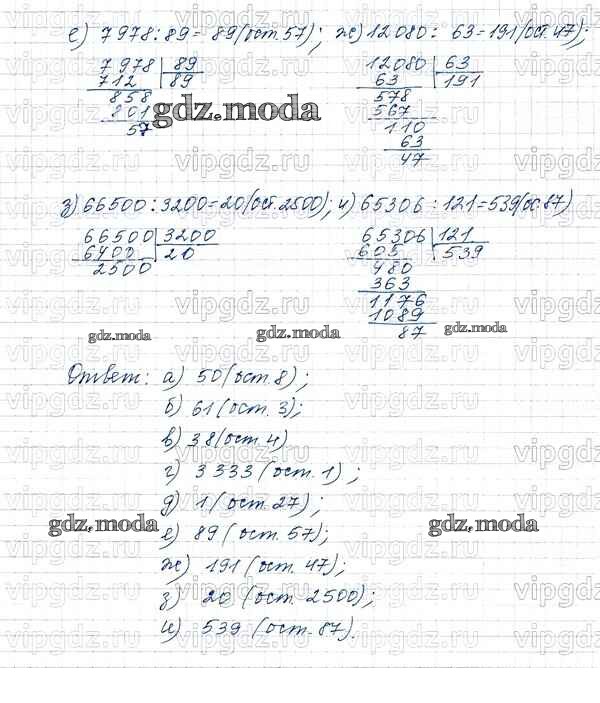 е) 7978:89= 89(ост.57); ж)12080: 63=191(ост.47);
7978 89 12080 63
712 89 63 191
858 578
801 567
57 110
63
47
gdz.moda
з)66500:3200=20(ост.2500); и) 65306:121=539(ос.87)
66500 3200 65306 121
6400 20 605 539
2500 480
363
1176
1089
87
gdz.moda gdz.moda gdz.moda
Ответ: а) 50(ост.8);
б) 61(ост. 3);
в) 38(ост.4)
г) 3333(ост.1);
д) 1(ост.27);
е) 89(ост.57);
ж) 191(ост.47);
з) 20(ост. 2500);
и) 539(ост.87).
gdz.moda gdz.moda
vipgdz.ru